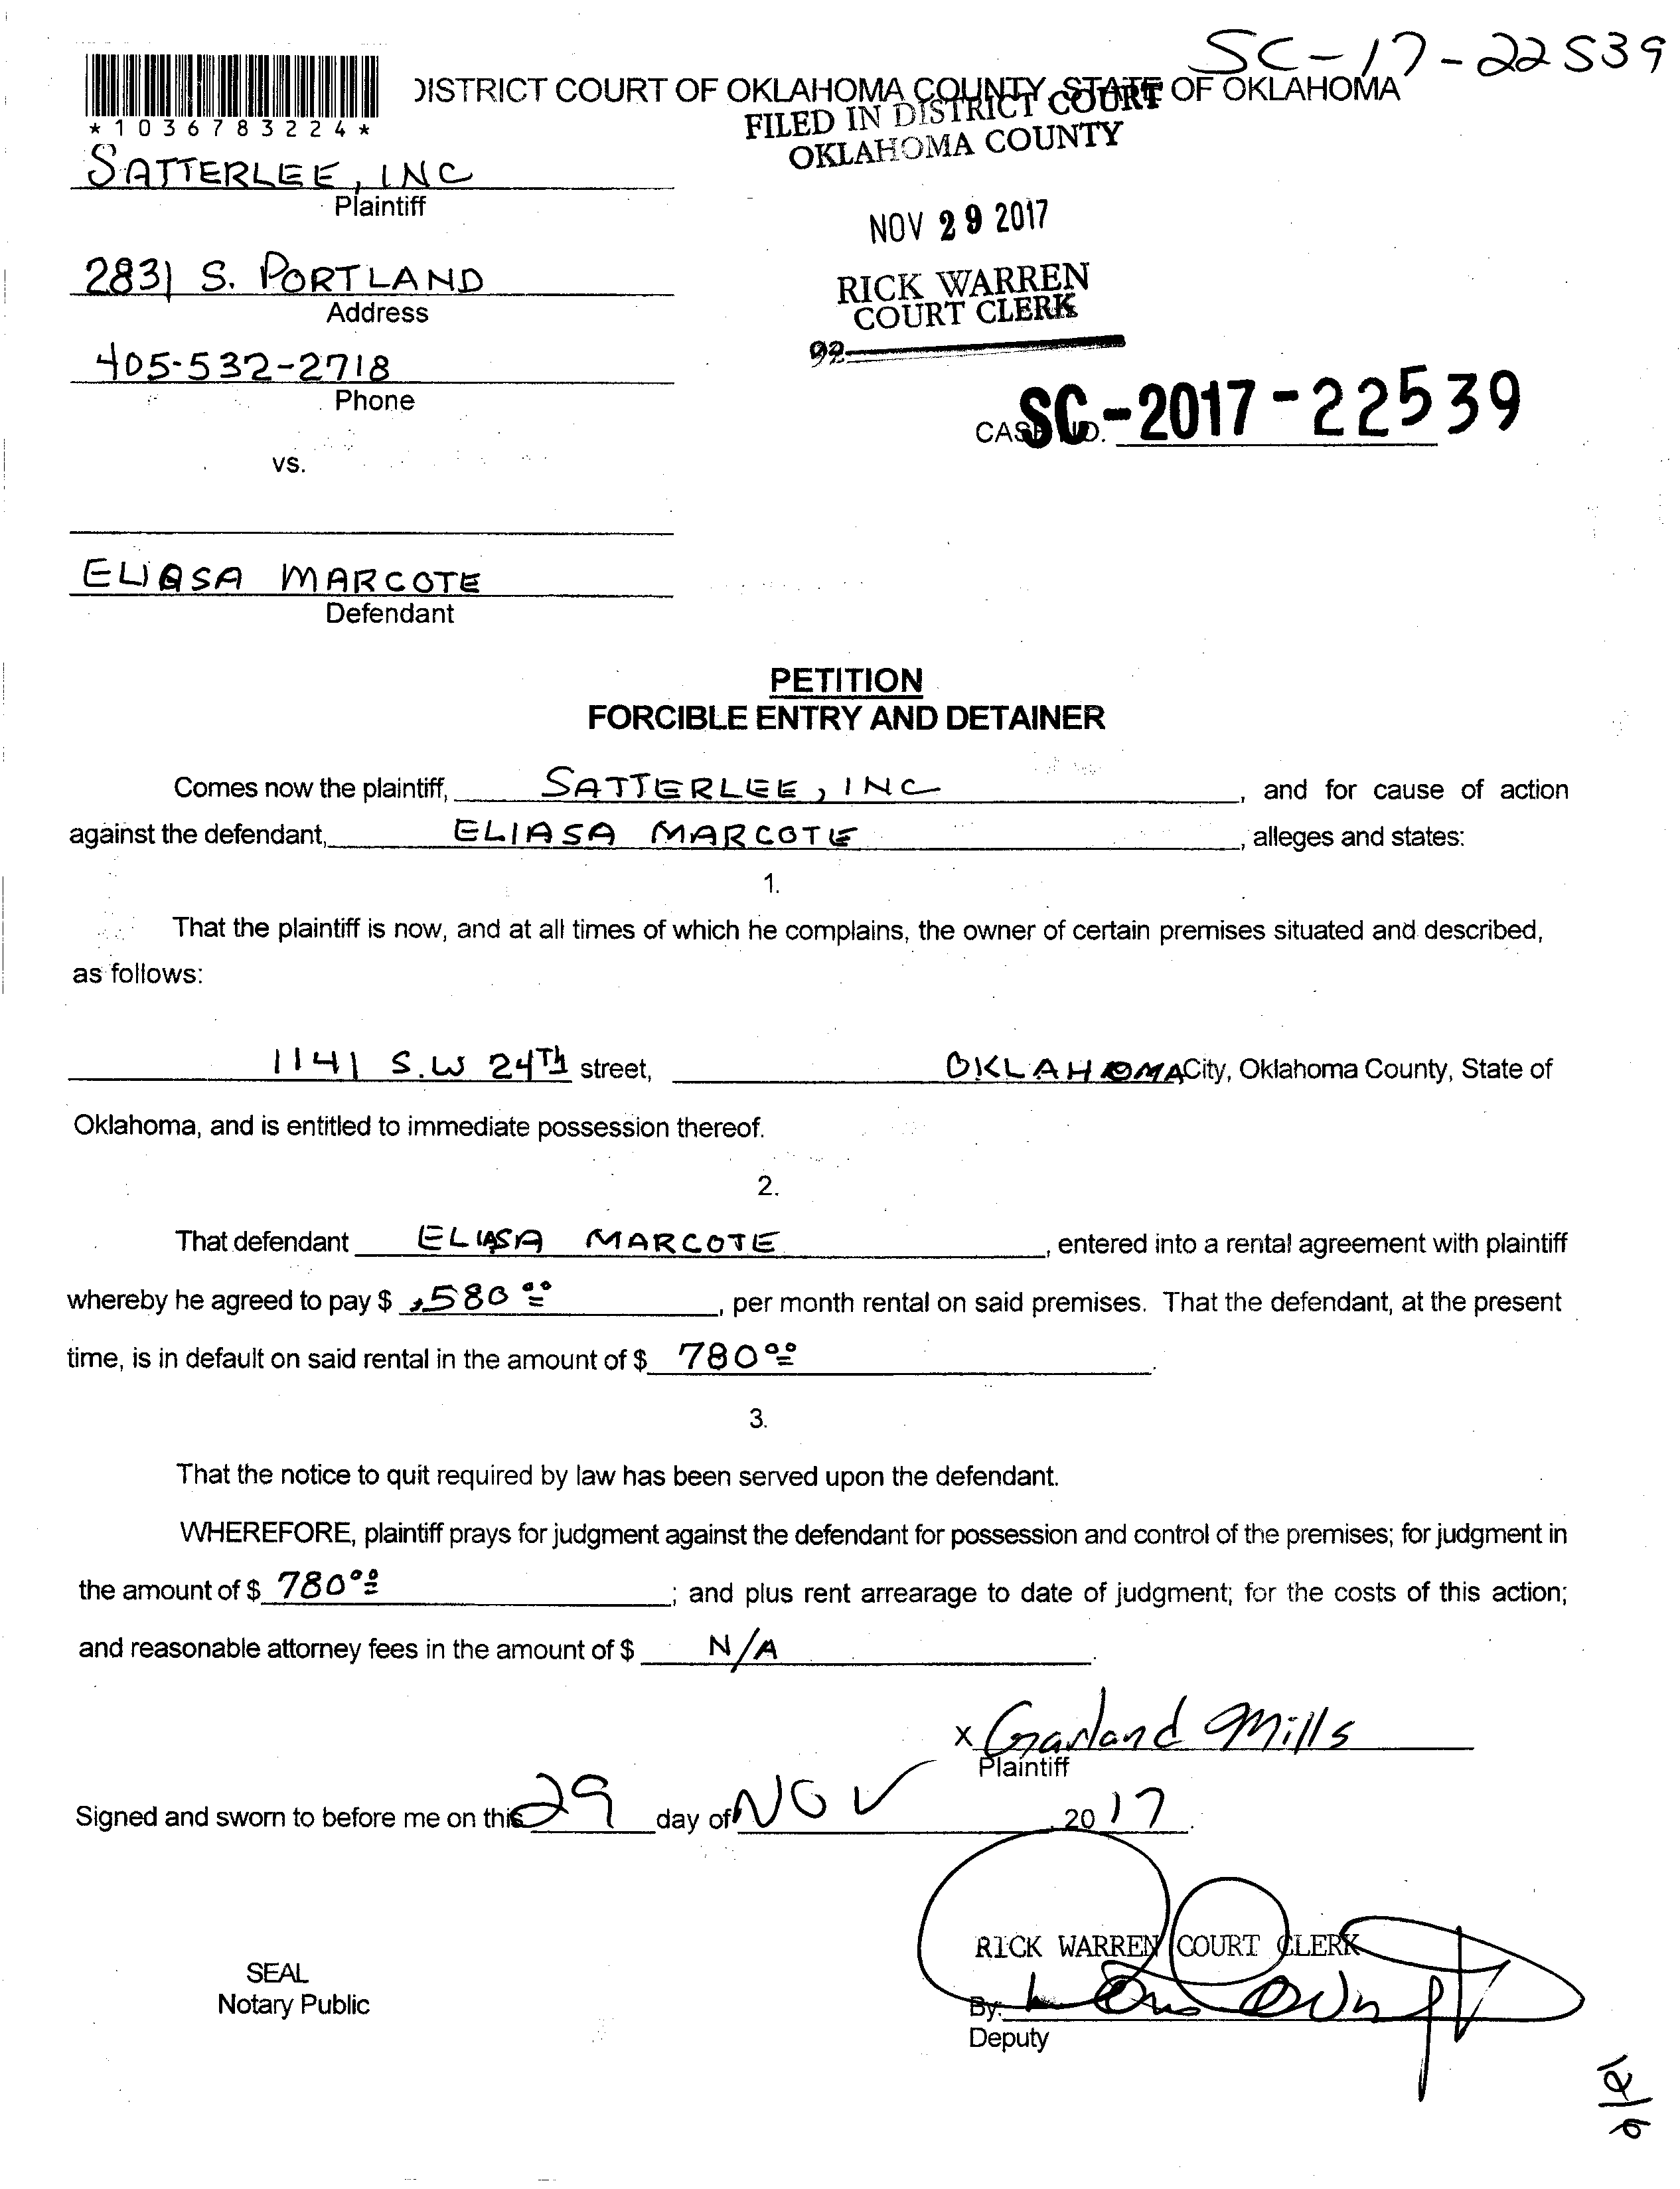 SC-17-22539
DISTRICT COURT OF OKLAHOMA COUNTY, STATE OF OKLAHOMA
FILED IN DISTRICT COURT
OKLAHOMA COUNTY
*1036783224*
SATTERLEE, INC
Plaintiff
NOV 29 2017
2831 S. PORTLAND
Address
RICK WARREN
COURT CLERK
405-532-2718
92
Phone
CASE NO. SC-2017-22539
vs.
ELIASA MARCOTE
Defendant
PETITION
FORCIBLE ENTRY AND DETAINER
Comes now the plaintiff, SATTERLEE, INC, and for cause of action
against the defendant, ELIASA MARCOTE, alleges and states:
1.
That the plaintiff is now, and at all times of which he complains, the owner of certain premises situated and described,
as follows:
1141 S.W 24Th street, OKLAHOMA City, Oklahoma County, State of
Oklahoma, and is entitled to immediate possession thereof.
2.
That defendant ELIASA MARCOTE, entered into a rental agreement with plaintiff
whereby he agreed to pay $ 580 00, per month rental on said premises. That the defendant, at the present
time, is in default on said rental in the amount of $ 780 00.
3.
That the notice to quit required by law has been served upon the defendant.
WHEREFORE, plaintiff prays for judgment against the defendant for possession and control of the premises; for judgment in
the amount of $ 780 00; and plus rent arrearage to date of judgment; for the costs of this action;
and reasonable attorney fees in the amount of $ N/A.
x Garland Mills
Plaintiff
Signed and sworn to before me on this 29 day of NOV, 2017.
RICK WARREN COURT CLERK
SEAL
Notary Public
By:
Deputy